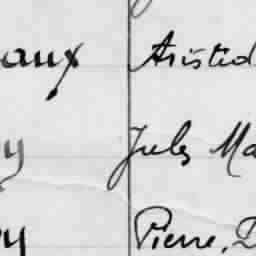 aux Aristid
y Jules Ma
y Pierre, D